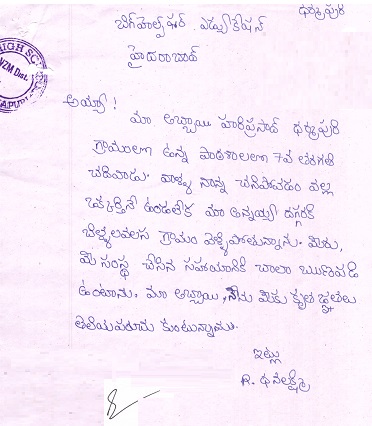 ధర్మాపురి
బిగ్‌హెల్ప్ ఫర్ ఎడ్యుకేషన్
హైదరాబాద్
HIGH SC
VZM Dist.
అయ్యా !
మా అబ్బాయి హరిప్రసాద్ ధర్మాపురి
గ్రామంలో ఉన్న పాఠశాలలో 7వ తరగతి
చదివాడు. వాళ్ళ నాన్న చనిపోవడం వల్ల
ఒక్కత్తినే ఉండలేక మా అన్నయ్య దగ్గరకి
గ్రామం వెళ్ళిపోతున్నాను. మీరు,
మీ సంస్థ చేసిన సహాయానికి చాలా ఋణపడి
ఉంటాను. మా అబ్బాయి, నేను మీకు కృతజ్ఞతలు
తెలియపరుచు కుంటున్నాము.
ఇట్లు
R. ధనలక్ష్మి